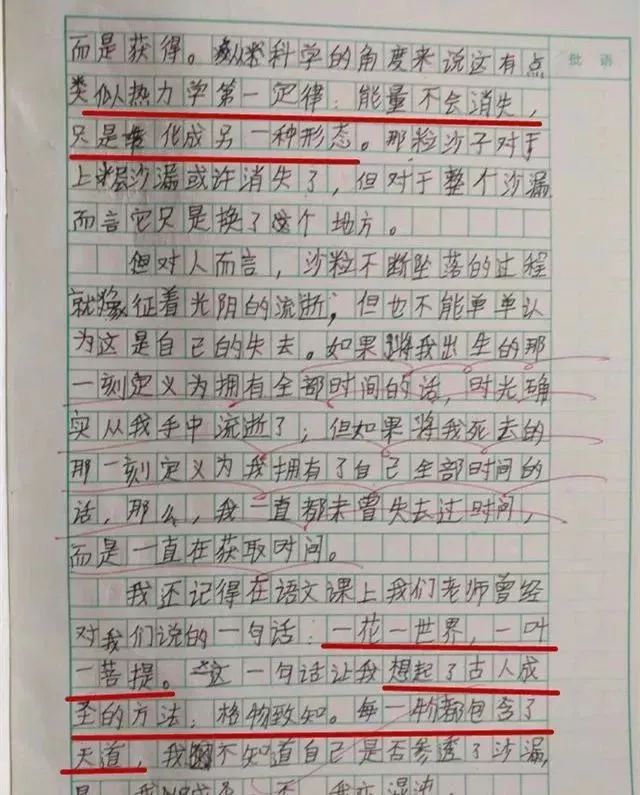 批语
而是获得。纵科学的角度来说这有点
类似热力学第一定律：能量不会消失，
只是化成另一种形态。那粒沙子对于
上层沙漏或许消失了，但对于整个沙漏
而言它只是换了个地方。
但对人而言，沙粒不断坠落的过程
就像征着光阴的流逝，但也不能单单认
为这是自己的失去。如果将我出生的那
一刻定义为拥有全部时间的话，时光确
实从我手中流逝了；但如果将我死去的
那一刻定义为我拥有了自己全部时间的
话，那么，我一直都未曾失去过时间，
而是一直在获取时间。
我还记得在语文课上我们老师曾经
对我们说的一句话：一花一世界，一叶
一菩提。这一句话让我想起了古人成
圣的方法：格物致知。每一物都包含了
天道，我不知道自己是否参透了沙漏，